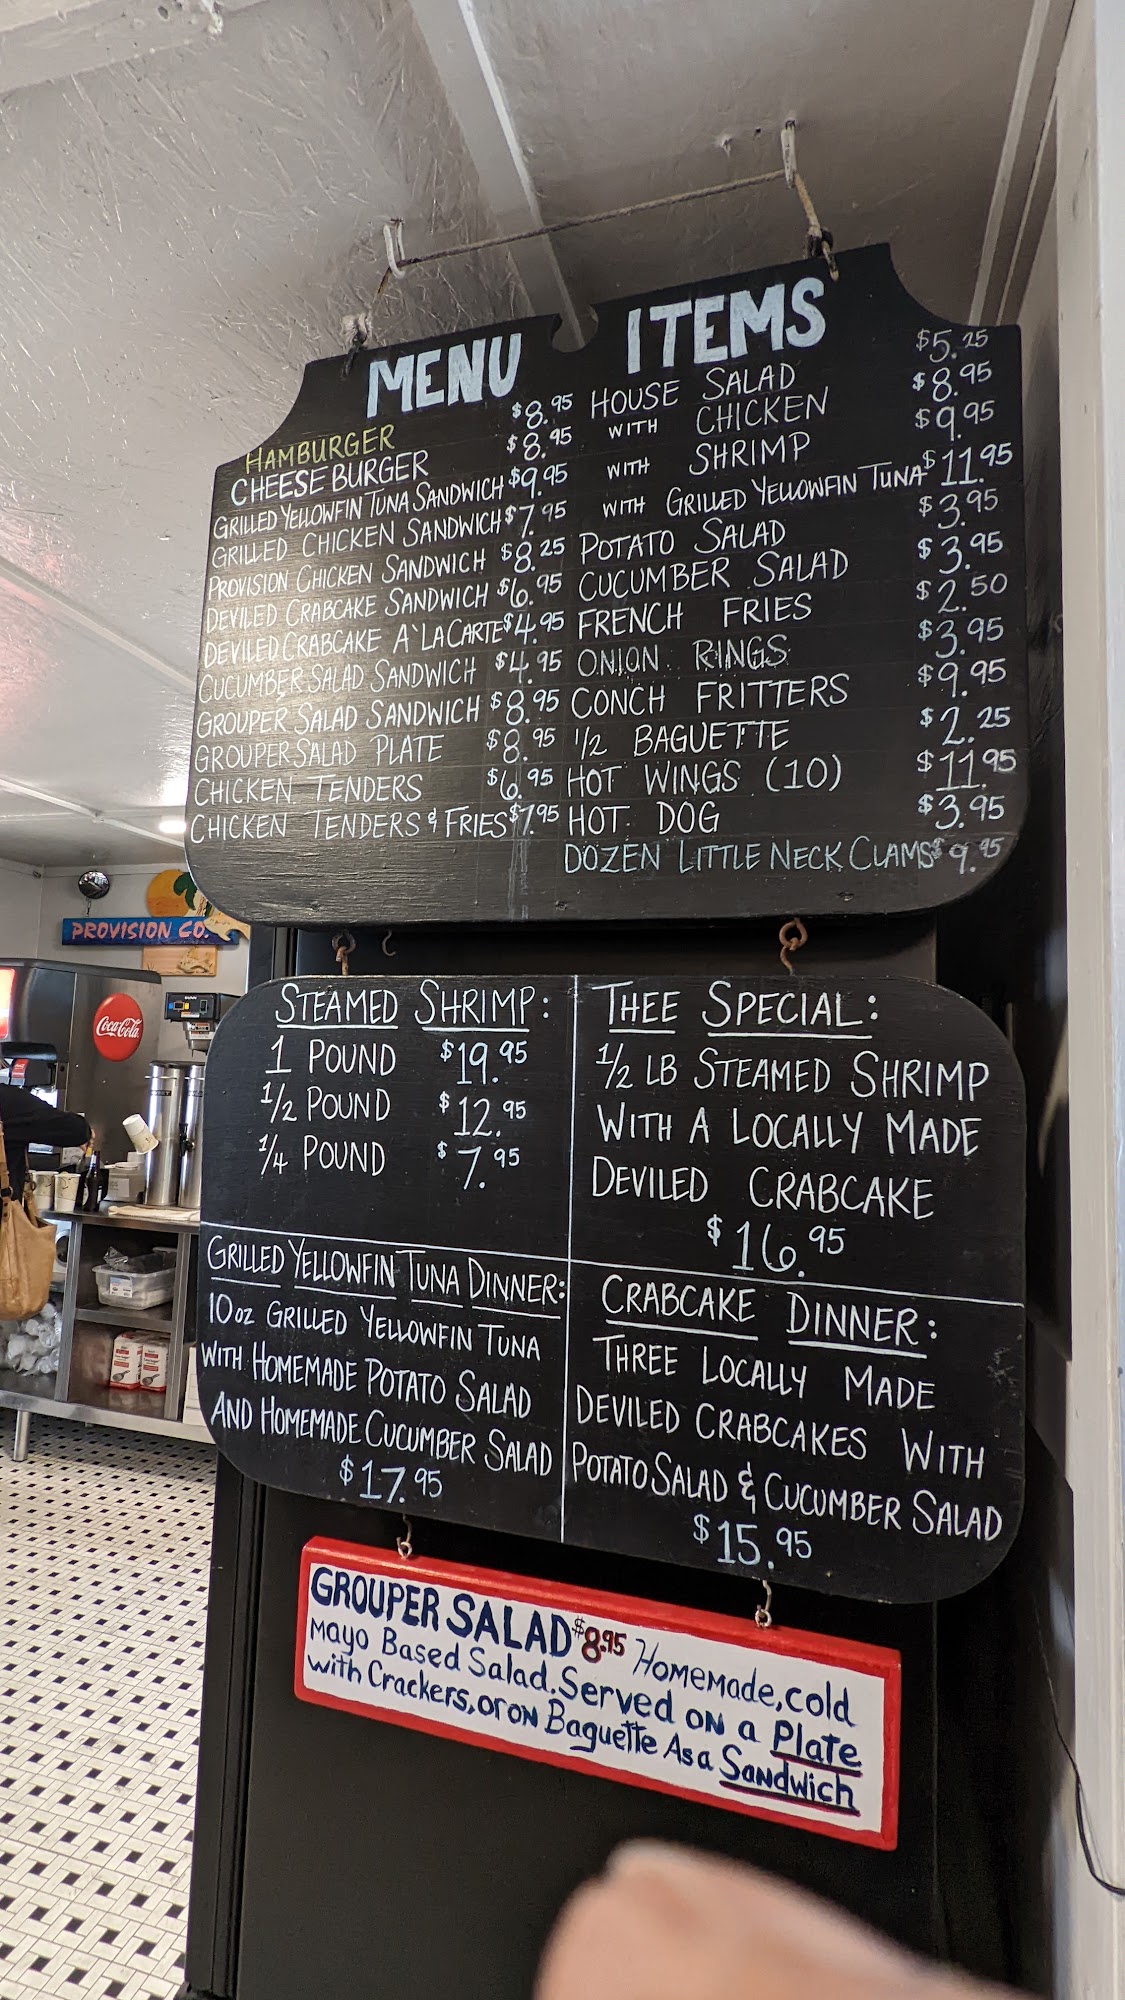 MENU ITEMS
HAMBURGER $8.95
CHEESEBURGER $8.95
GRILLED YELLOWFIN TUNA SANDWICH $9.95
GRILLED CHICKEN SANDWICH $7.95
PROVISION CHICKEN SANDWICH $8.25
DEVILED CRABCAKE SANDWICH $6.95
DEVILED CRABCAKE A`LA CARTE $4.95
CUCUMBER SALAD SANDWICH $4.95
GROUPER SALAD SANDWICH $8.95
GROUPER SALAD PLATE $8.95
CHICKEN TENDERS $6.95
CHICKEN TENDERS & FRIES $7.95
HOUSE SALAD $5.25
WITH CHICKEN $8.95
WITH SHRIMP $9.95
WITH GRILLED YELLOWFIN TUNA $11.95
POTATO SALAD $3.95
CUCUMBER SALAD $3.95
FRENCH FRIES $2.50
ONION RINGS $3.95
CONCH FRITTERS $9.95
1/2 BAGUETTE $2.25
HOT WINGS (10) $11.95
HOT DOG $3.95
DOZEN LITTLE NECK CLAMS $9.95
PROVISION CO.
Coca-Cola
STEAMED SHRIMP:
1 POUND $19.95
1/2 POUND $12.95
1/4 POUND $7.95
THEE SPECIAL:
1/2 LB STEAMED SHRIMP
WITH A LOCALLY MADE
DEVILED CRABCAKE
$16.95
GRILLED YELLOWFIN TUNA DINNER:
10oz GRILLED YELLOWFIN TUNA
WITH HOMEMADE POTATO SALAD
AND HOMEMADE CUCUMBER SALAD
$17.95
CRABCAKE DINNER:
THREE LOCALLY MADE
DEVILED CRABCAKES WITH
POTATO SALAD & CUCUMBER SALAD
$15.95
GROUPER SALAD $8.95 Homemade, cold
mayo Based Salad. Served on a Plate
with Crackers, or on Baguette As a Sandwich